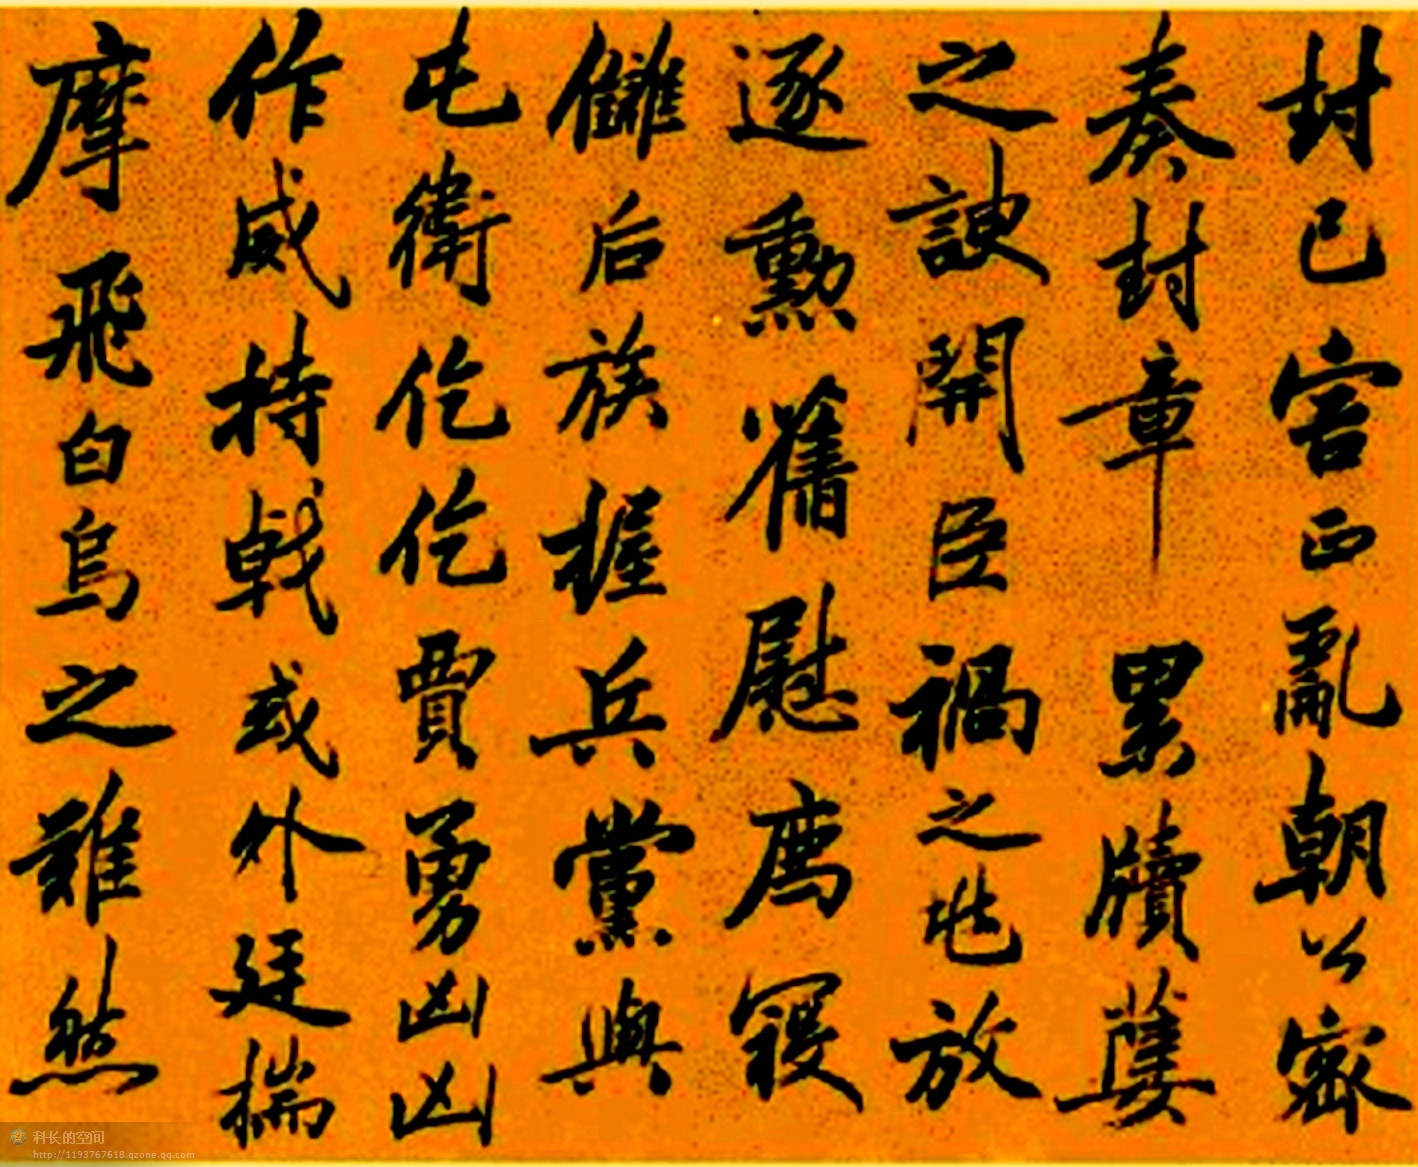 封己害正亂朝公密
奏封章累牘蔓
之諛開臣禍之階放
逐勳舊慰薦寢
讎后族握兵黨與
屯衛仡仡賈勇凶凶
作威持戟或外廷揣
摩飛白烏之雖然
科长的空间
http://1193767618.qzone.qq.com